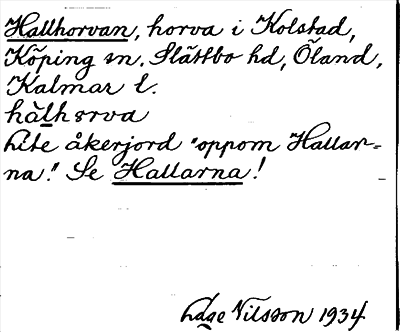 Hallhorvan, horva i Kolstad,
Köping sn. Slättbo hd, Öland,
Kalmar l.
hàlhorva
Lite åkerjord "oppom Hallar-
na". Se Hallarna!
Nilsson 1934